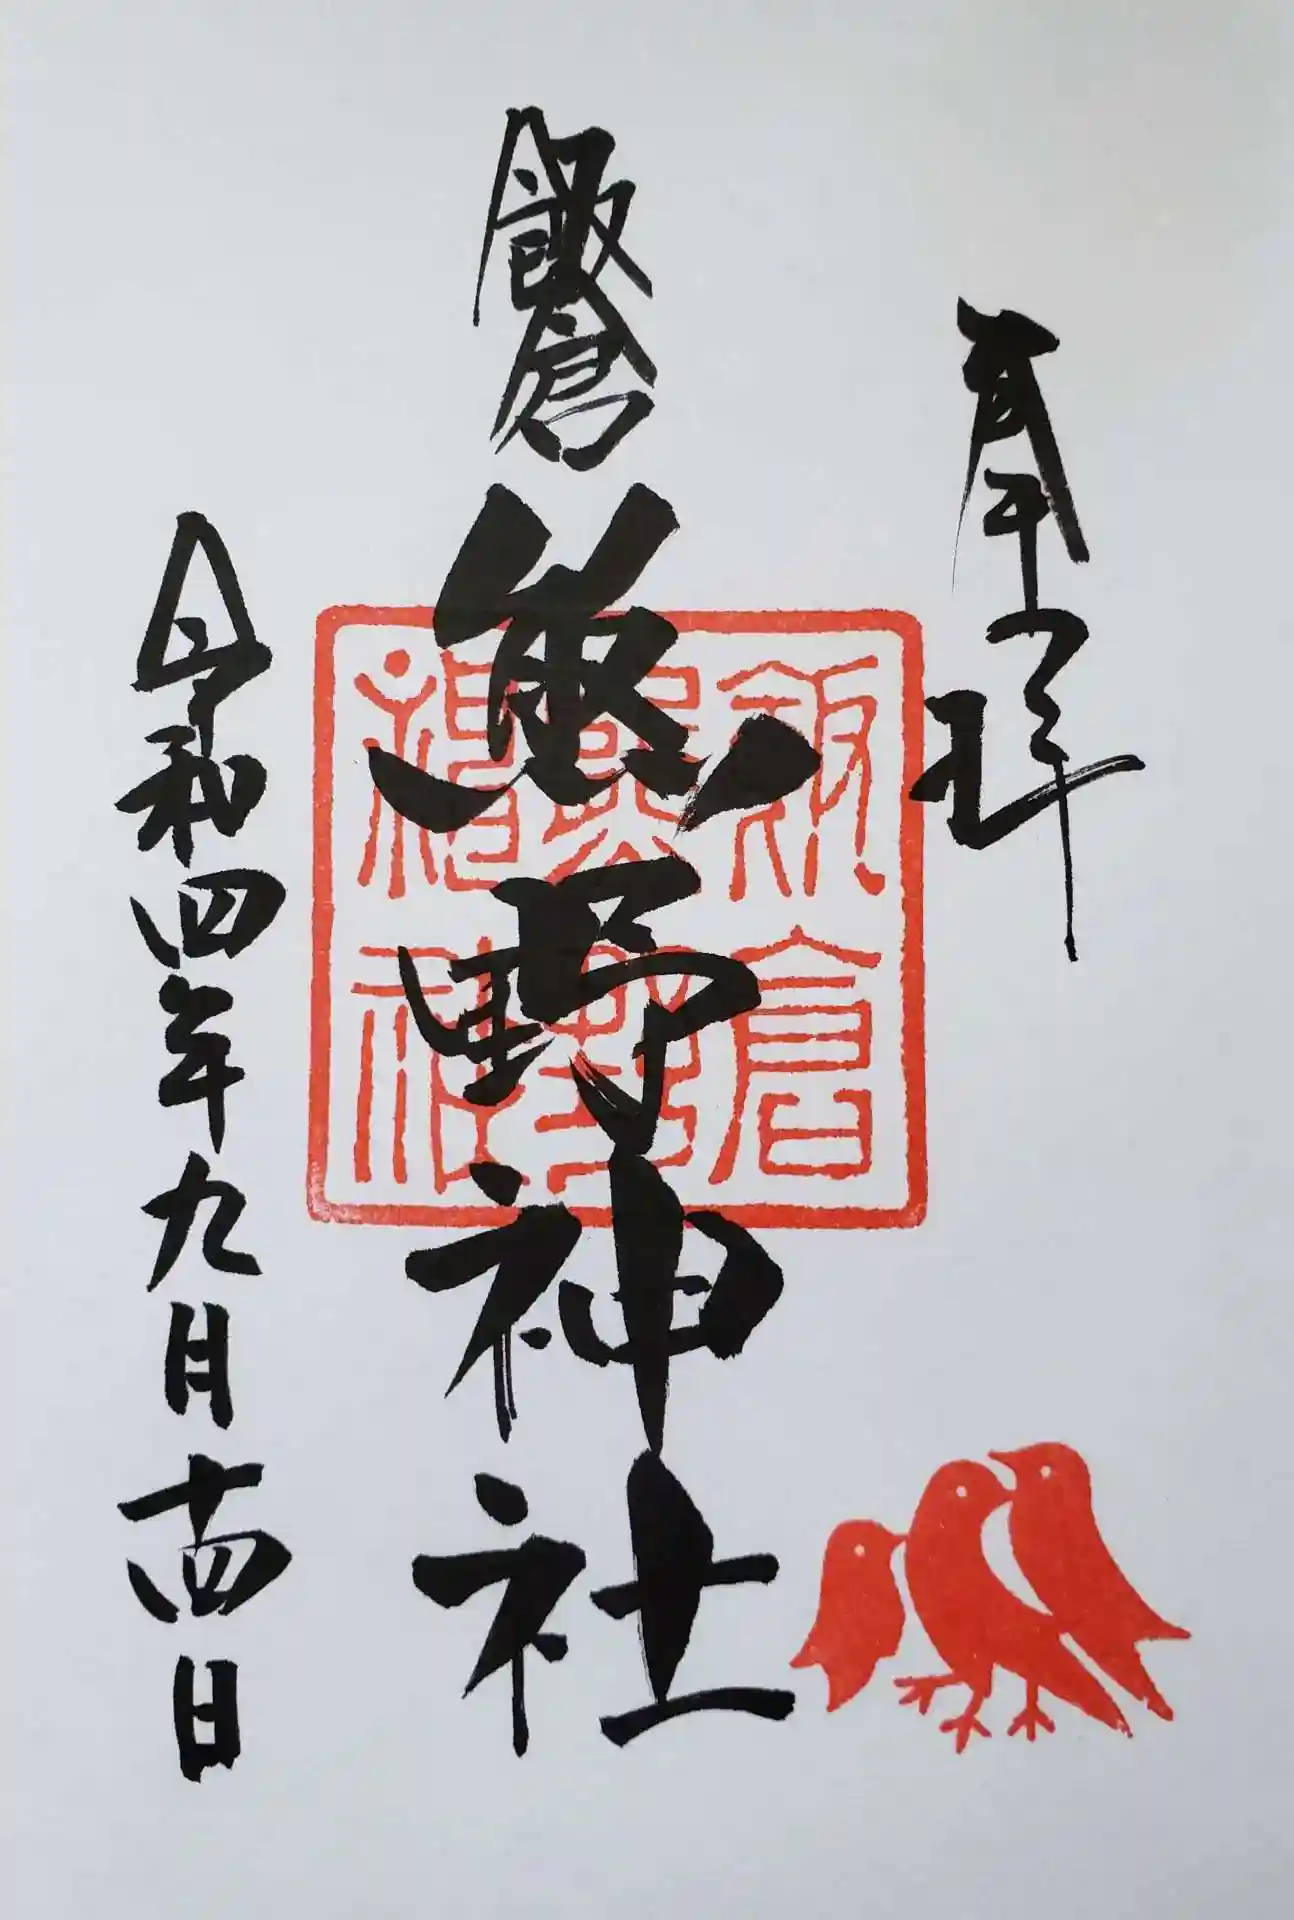 奉拝
飯倉
熊野神社
飯倉
熊野
神社
令和四年九月十四日